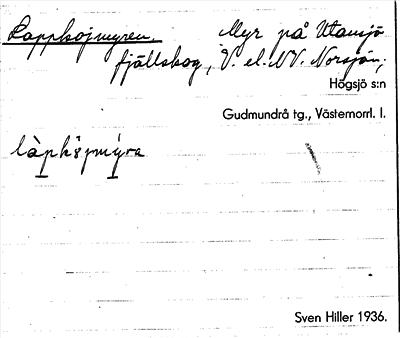 Lappkojmyren. Myr på Utansjö
fjällskog, V. el. NV. Norsjön;
Högsjö s:n
Gudmundrå tg., Västernorrl. l.
làpko̊jmýra
Sven Hiller 1936.